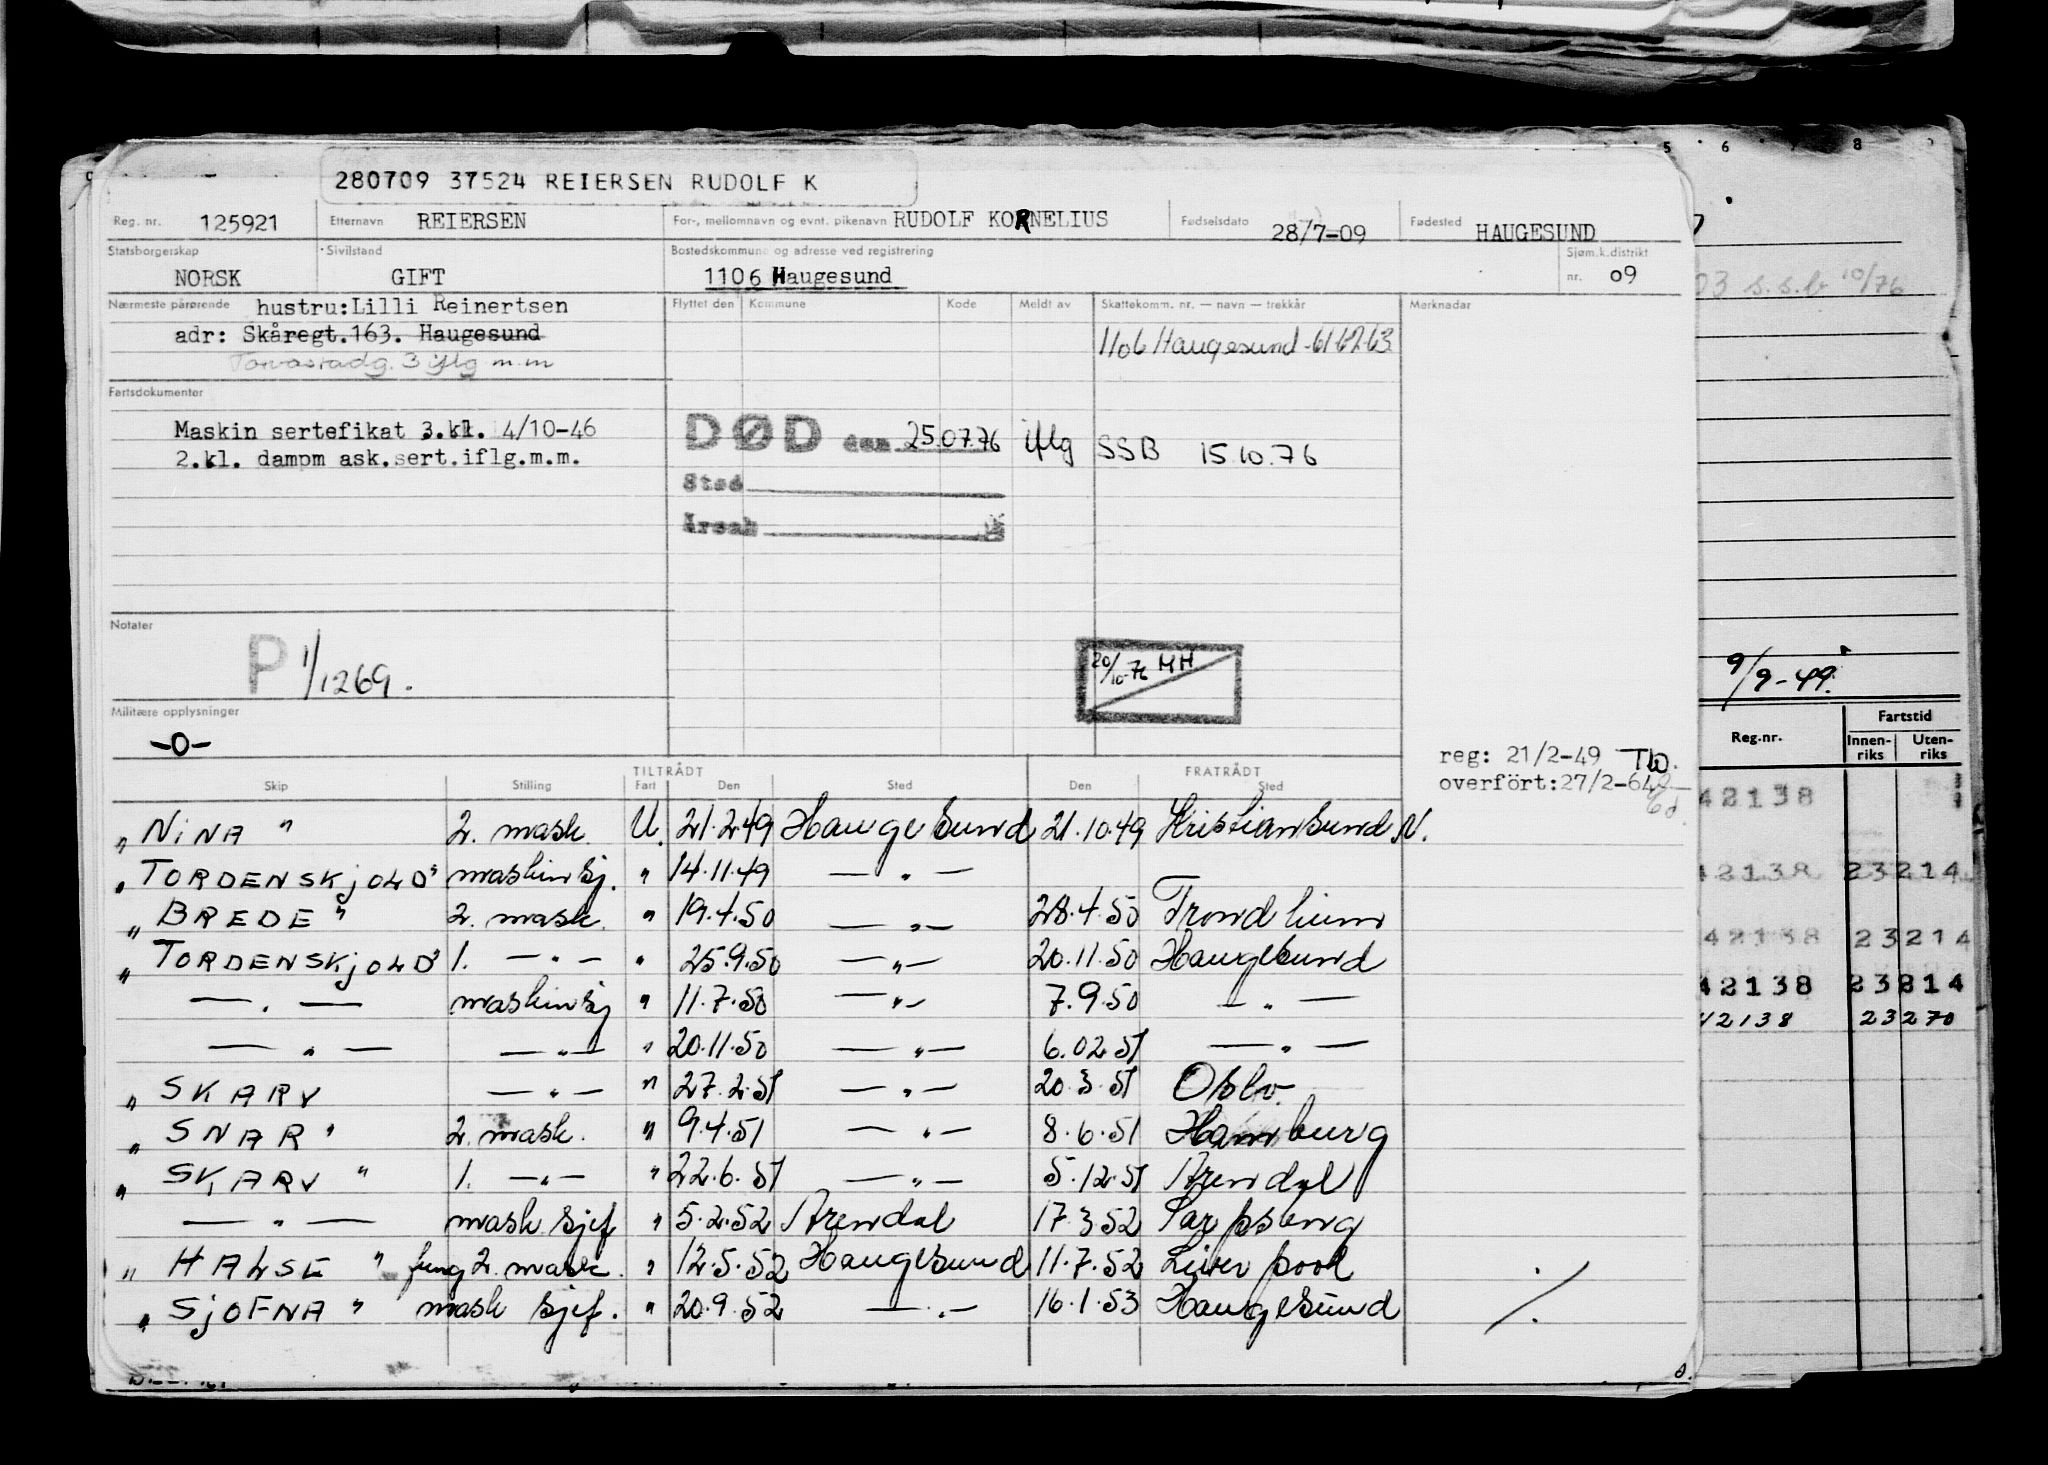 280709 37524 REIERSEN RUDOLF K
Reg. nr. 125921 Etternavn REIERSEN For-, mellomnavn og evnt. pikenavn RUDOLF KORNELIUS Fødselsdato 28/7-09 Fødested HAUGESUND
Statsborgerskap Sivilstand Bostedskommune og adresse ved registrering Sjøm.k.distrikt
NORSK GIFT 1106 Haugesund nr. 09
Nærmeste pårørende hustru:Lilli Reinertsen Flyttet den Kommune Kode Meldt av Skattekomm. nr. — navn — trekkår Merknader
adr: Skåregt.163. Haugesund 1106 Haugesund -61-62-63
3 iflg m.m
Fartsdokumenter
Maskin sertefikat 3.kl. 4/10-46 DØD den 25.07.76 iflg SSB 15.10.76
2.kl. dampm ask.sert.iflg.m.m.
Sted
Årsak
Notater
P 1/1269.
20/10-76 HH
Militære opplysninger
-0-
reg: 21/2-49
overført:27/2-64
TILTRÅDT FRATRÅDT
Skip Stilling Fart Den Sted Den Sted
„ NINA " 2. mask. U. 21.2.49 Haugesund 21.10.49 Kristiansund N.
„ TORDENSKjOLD" maskinsj. " 14.11.49 — " —
„ BREDE " 2. mask. " 19.4.50 — " — 28.4.50 Trondheim
„ TORDENSKjOLD" 1. — " — " 25.9.50 — " — 20.11.50 Haugesund
— " — maskinsj " 11.7.50 — " — 7.9.50 — " —
— " — — " — " 20.11.50 — " — 6.02.51 — " —
„ SKARV — " — " 27.2.51 — " — 20.3.51 Oslo.
„ SNAR " 2. mask. " 9.4.51 — " — 8.6.51 Hamburg
„ SKARV " 1. — " — " 22.6.51 — " — 5.12.51 Arendal
— " — mask sjef " 5.2.52 Arendal 17.3.52 Sarpsborg
„ HALSE " fung 2. mask. " 12.5.52 Haugesund 11.7.52 Liverpool
„ SjOFNA " mask sjef. " 20.9.52 — " — 16.1.53 Haugesund
5 6 8
03 s.s.b 10/76
9/9-49.
Reg.nr. Fartstid
Innen-riks Uten-riks
42138
42138 23214
42138 23214
42138 23214
42138 23270